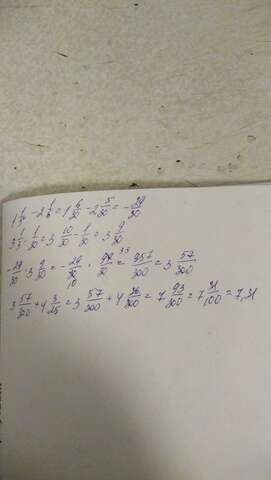 1 1/5 - 2 1/6 = 1 6/30 - 2 5/30 = - 29/30
3 1/3 - 1/30 = 3 10/30 - 1/30 = 3 9/30
- 29/30 · 3 9/30 = - 29/30 10 · 99/30 33 = 957/300 = 3 57/300
3 57/300 + 4 3/25 = 3 57/300 + 4 36/300 = 7 93/300 = 7 31/100 = 7,31